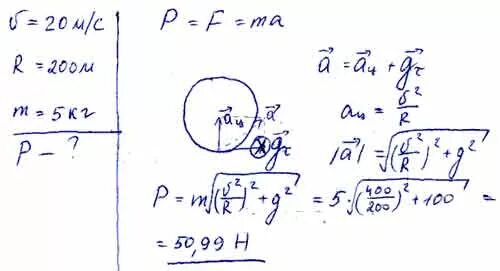 υ = 20 м/с
R = 200 м
m = 5 кг
P - ?
P = F = ma
a⃗ = a⃗ц + g⃗τ
aц = υ²/R
a⃗ц a⃗
g⃗τ
|a⃗| = √((υ²/R)² + g²)
P = m√((υ²/R)² + g²) = 5·√((400/200)² + 100) =
= 50,99 Н